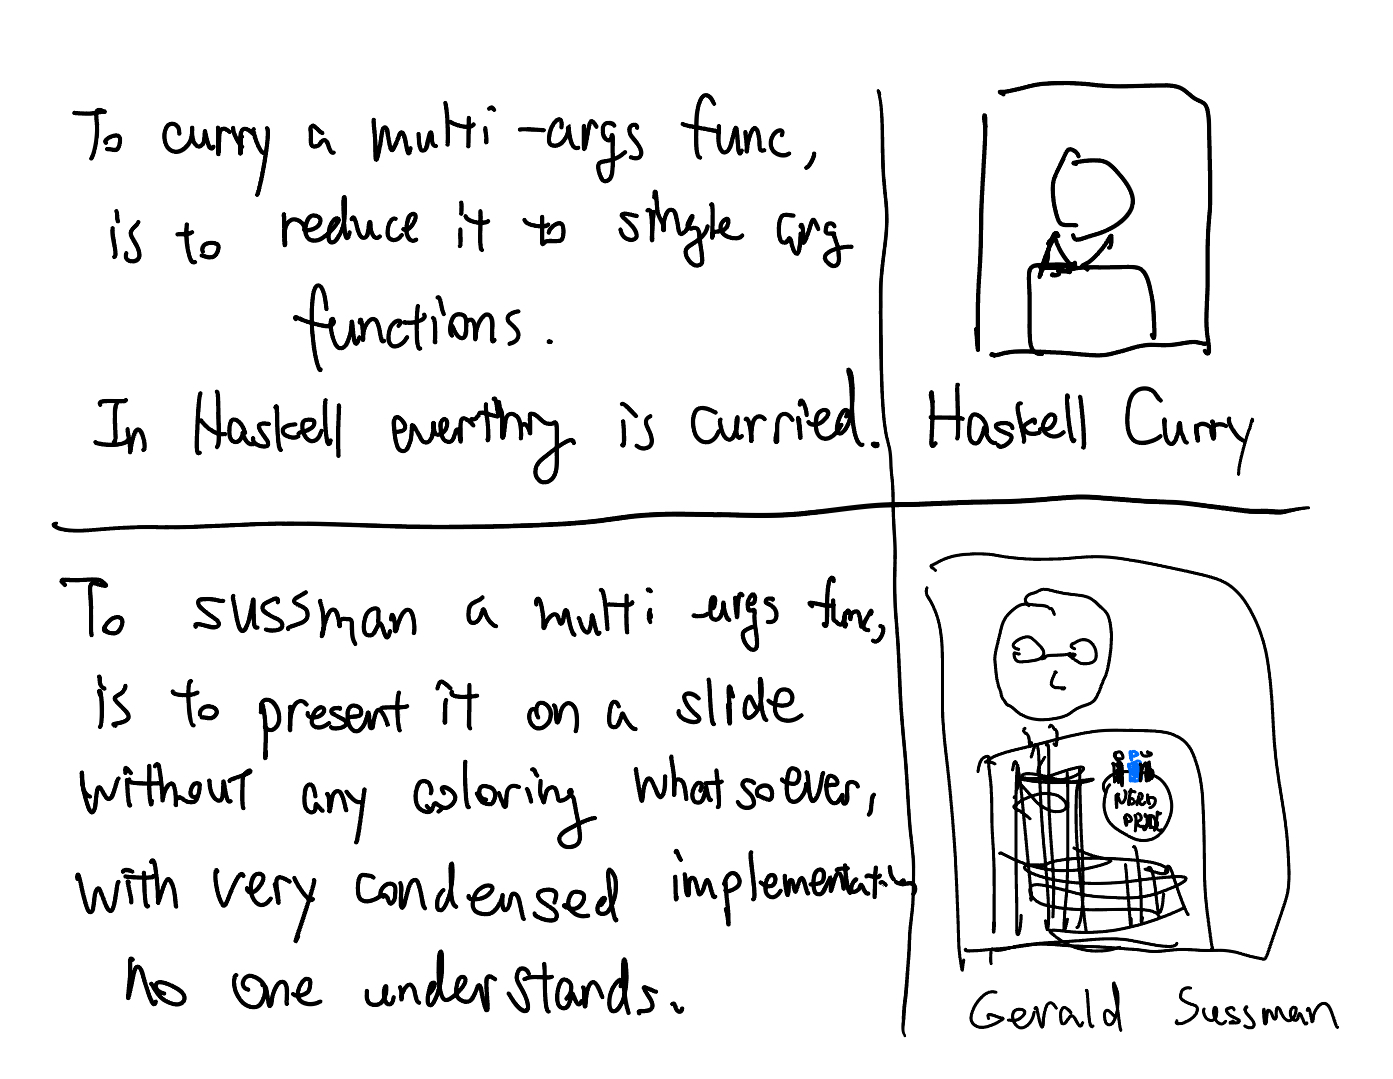 To curry a multi-args func,
is to reduce it to single arg
functions.
In Haskell everthing is curried.
Haskell Curry
To sussman a multi args func,
is to present it on a slide
without any coloring whatsoever,
with very condensed implementation
no one understands.
NERD
PRIDE
Gerald Sussman